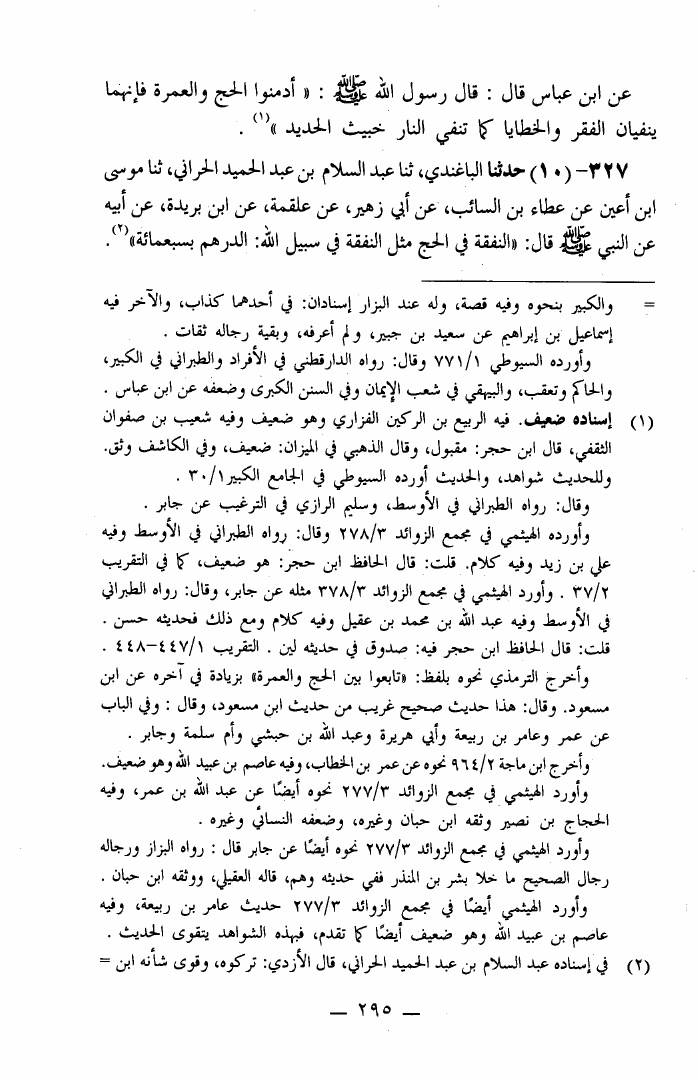 عن ابن عباس قال : قال رسول الله ﷺ : « أدمنوا الحج والعمرة فإنهما
ينفيان الفقر والخطايا كما تنفي النار خبيث الحديد »(١) .
٣٢٧-(١٠) حدثنا الباغندي، ثنا عبد السلام بن عبد الحميد الحراني، ثنا موسى
ابن أعين عن عطاء بن السائب، عن أبي زهير، عن علقمة، عن ابن بريدة، عن أبيه
عن النبي ﷺ قال: «النفقة في الحج مثل النفقة في سبيل الله: الدرهم بسبعمائة»(٢).
= والكبير بنحوه وفيه قصة، وله عند البزار إسنادان: في أحدهما كذاب، والآخر فيه
إسماعيل بن إبراهيم عن سعيد بن جبير، ولم أعرفه، وبقية رجاله ثقات .
وأورده السيوطي ٧٧١/١ وقال: رواه الدارقطني في الأفراد والطبراني في الكبير،
والحاكم وتعقب، والبيهقي في شعب الإيمان وفي السنن الكبرى وضعفه عن ابن عباس .
(١) إسناده ضعيف. فيه الربيع بن الركين الفزاري وهو ضعيف وفيه شعيب بن صفوان
الثقفي، قال ابن حجر: مقبول، وقال الذهبي في الميزان: ضعيف، وفي الكاشف وثق.
وللحديث شواهد، والحديث أورده السيوطي في الجامع الكبير ٣٠/١ .
وقال: رواه الطبراني في الأوسط، وسليم الرازي في الترغيب عن جابر .
وأورده الهيثمي في مجمع الزوائد ٢٧٨/٣ وقال: رواه الطبراني في الأوسط وفيه
علي بن زيد وفيه كلام. قلت: قال الحافظ ابن حجر: هو ضعيف، كما في التقريب
٣٧/٢ . وأورد الهيثمي في مجمع الزوائد ٣٧٨/٣ مثله عن جابر، وقال: رواه الطبراني
في الأوسط وفيه عبد الله بن محمد بن عقيل وفيه كلام ومع ذلك فحديثه حسن .
قلت: قال الحافظ ابن حجر فيه: صدوق في حديثه لين . التقريب ٤٤٧/١–٤٤٨ .
وأخرج الترمذي نحوه بلفظ: «تابعوا بين الحج والعمرة» بزيادة في آخره عن ابن
مسعود. وقال: هذا حديث صحيح غريب من حديث ابن مسعود، وقال : وفي الباب
عن عمر وعامر بن ربيعة وأبي هريرة وعبد الله بن حبشي وأم سلمة وجابر .
وأخرج ابن ماجة ٩٦٤/٢ نحوه عن عمر بن الخطاب، وفيه عاصم بن عبيد الله وهو ضعيف.
وأورد الهيثمي في مجمع الزوائد ٢٧٧/٣ نحوه أيضًا عن عبد الله بن عمر، وفيه
الحجاج بن نصير وثقه ابن حبان وغيره، وضعفه النسائي وغيره .
وأورد الهيثمي في مجمع الزوائد ٢٧٧/٣ نحوه أيضًا عن جابر قال : رواه البزار ورجاله
رجال الصحيح ما خلا بشر بن المنذر ففي حديثه وهم، قاله العقيلي، ووثقه ابن حبان .
وأورد الهيثمي أيضًا في مجمع الزوائد ٢٧٧/٣ حديث عامر بن ربيعة، وفيه
عاصم بن عبيد الله وهو ضعيف أيضًا كما تقدم، فبهذه الشواهد يتقوى الحديث .
(٢) في إسناده عبد السلام بن عبد الحميد الحراني، قال الأزدي: تركوه، وقوى شأنه ابن =
— ٢٩٥ —